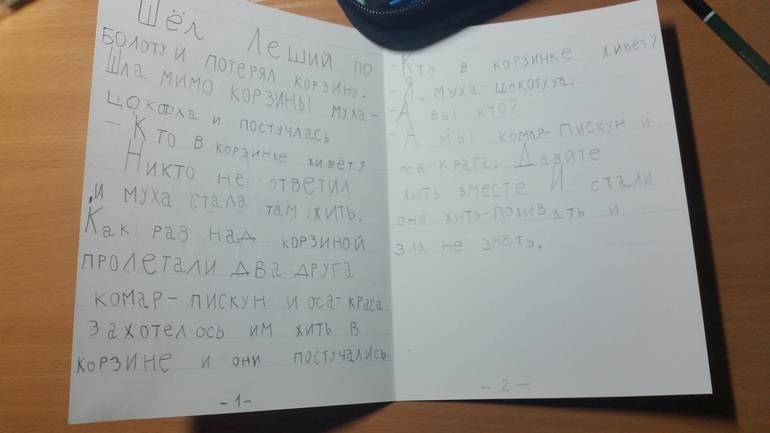 Шёл Леший по
болоту и потерял корзину.
Шла мимо корзины муха-
цокотуха и постучлась
- Кто в корзинке живёт?
Никто не ответил
и муха стала там жить.
Как раз над корзиной
пролетали два друга
комар-пискун и оса-краса
Захотелось им жить в
корзине и они постучались.
-1-
-Кто в корзинке живет?
-Я, муха-цокотуха.
-А вы кто?
-А мы комар-пискун и
оса-краса. Давйте
жить вместе. И стали
они жить-поживать и
зла не знать.
-2-